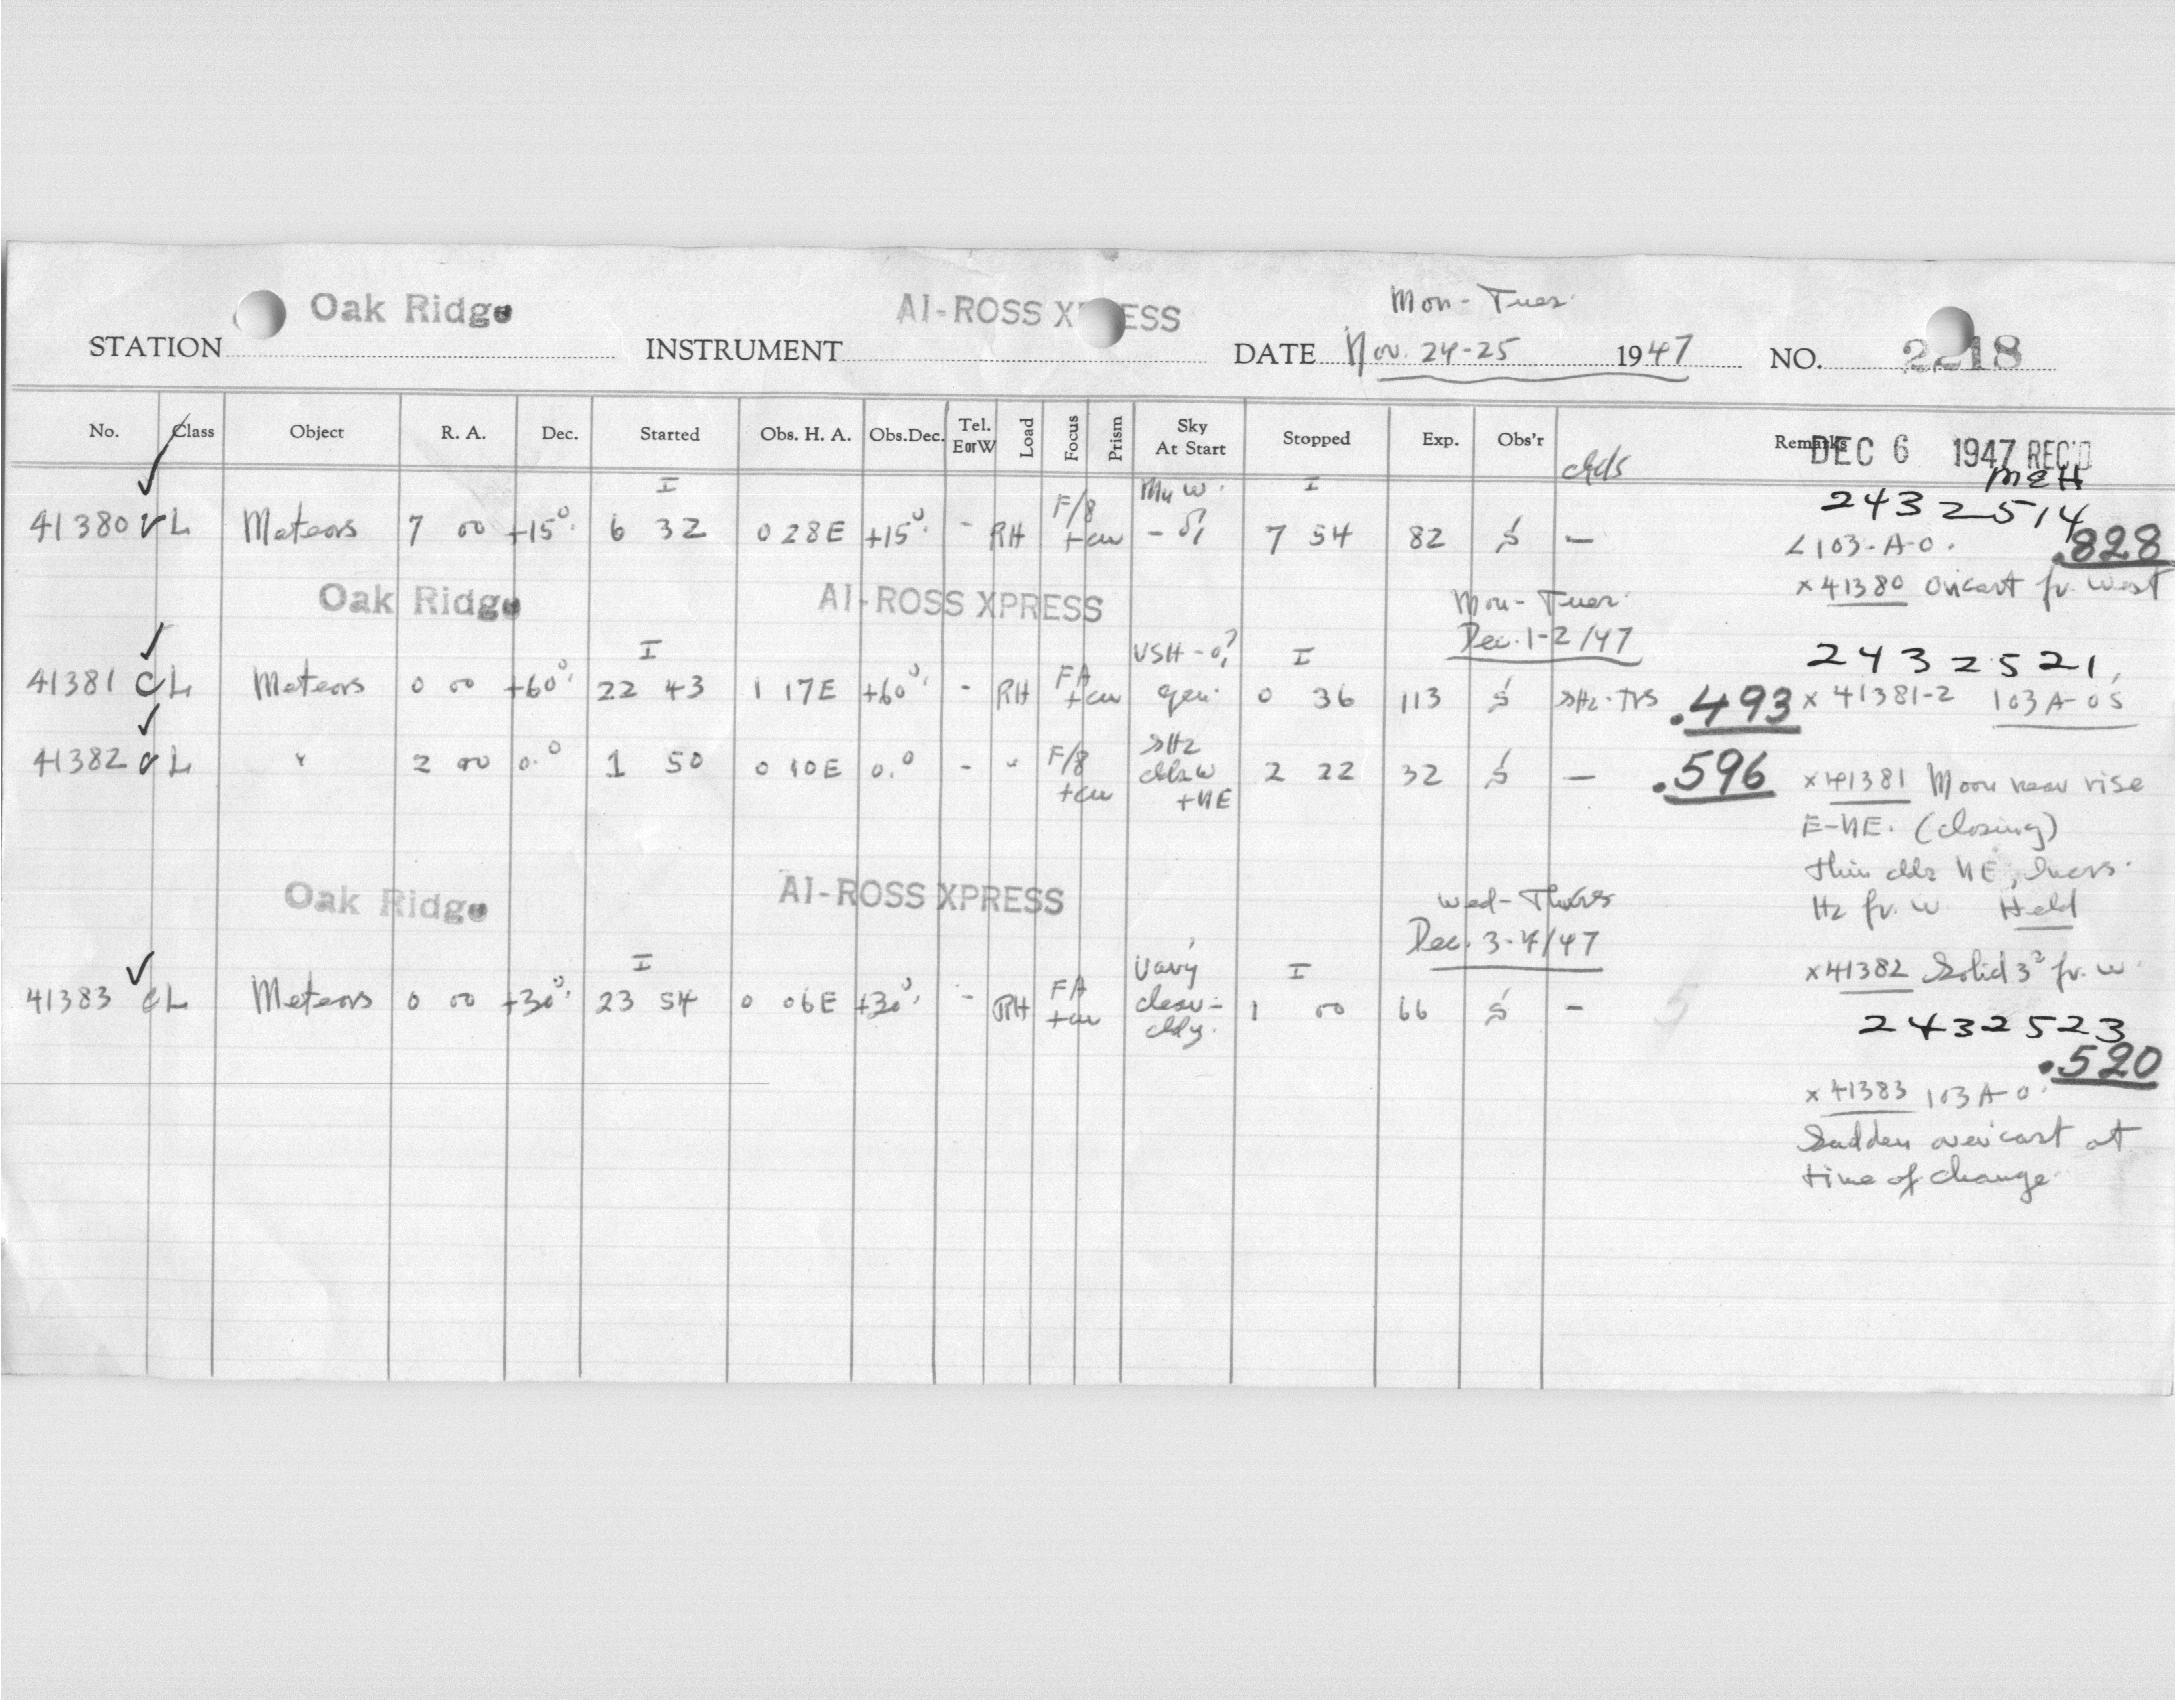 Oak Ridge AI-ROSS XPRESS Mon-Tues.
STATION INSTRUMENT DATE Nov. 24-25 1947 NO. 2218
No. Class Object R. A. Dec. Started Obs. H. A. Obs.Dec. Tel. EorW Load Focus Prism Sky At Start Stopped Exp. Obs'r Remarks
DEC 6 1947 REC'D
MEH
2432514
I I
41380 L Meteors 7 00 +15° 6 32 0 28E +15° - RH F/8 7 54 82 S —
.828
103-A-O.
x 41380 fr. West
Oak Ridge AI-ROSS XPRESS Mon-Tues.
Dec. 1-2/47
2432521
I I
41381 C L Meteors 0 00 +60° 22 43 1 17E +60° - RH FA 0 36 113 S
.493 x 41381-2 103A-O's
41382 L " 2 00 0.° 1 50 0 10E 0.° - " F/8 +NE 2 22 32 S —
.596 x 41381 Moon near rise
E-NE. (closing)
thin clds NE, Incrs.
Hz fr. W Held
Oak Ridge AI-ROSS XPRESS Wed-Thurs
Dec. 3-4/47
x 41382 Solid fr. W.
I I
41383 C L Meteors 0 00 +30° 23 54 0 06E +30° - RH FA clear- cldy. 1 00 66 S -
2432523
.520
x 41383 103A-O.
Sudden overcast at
time of change